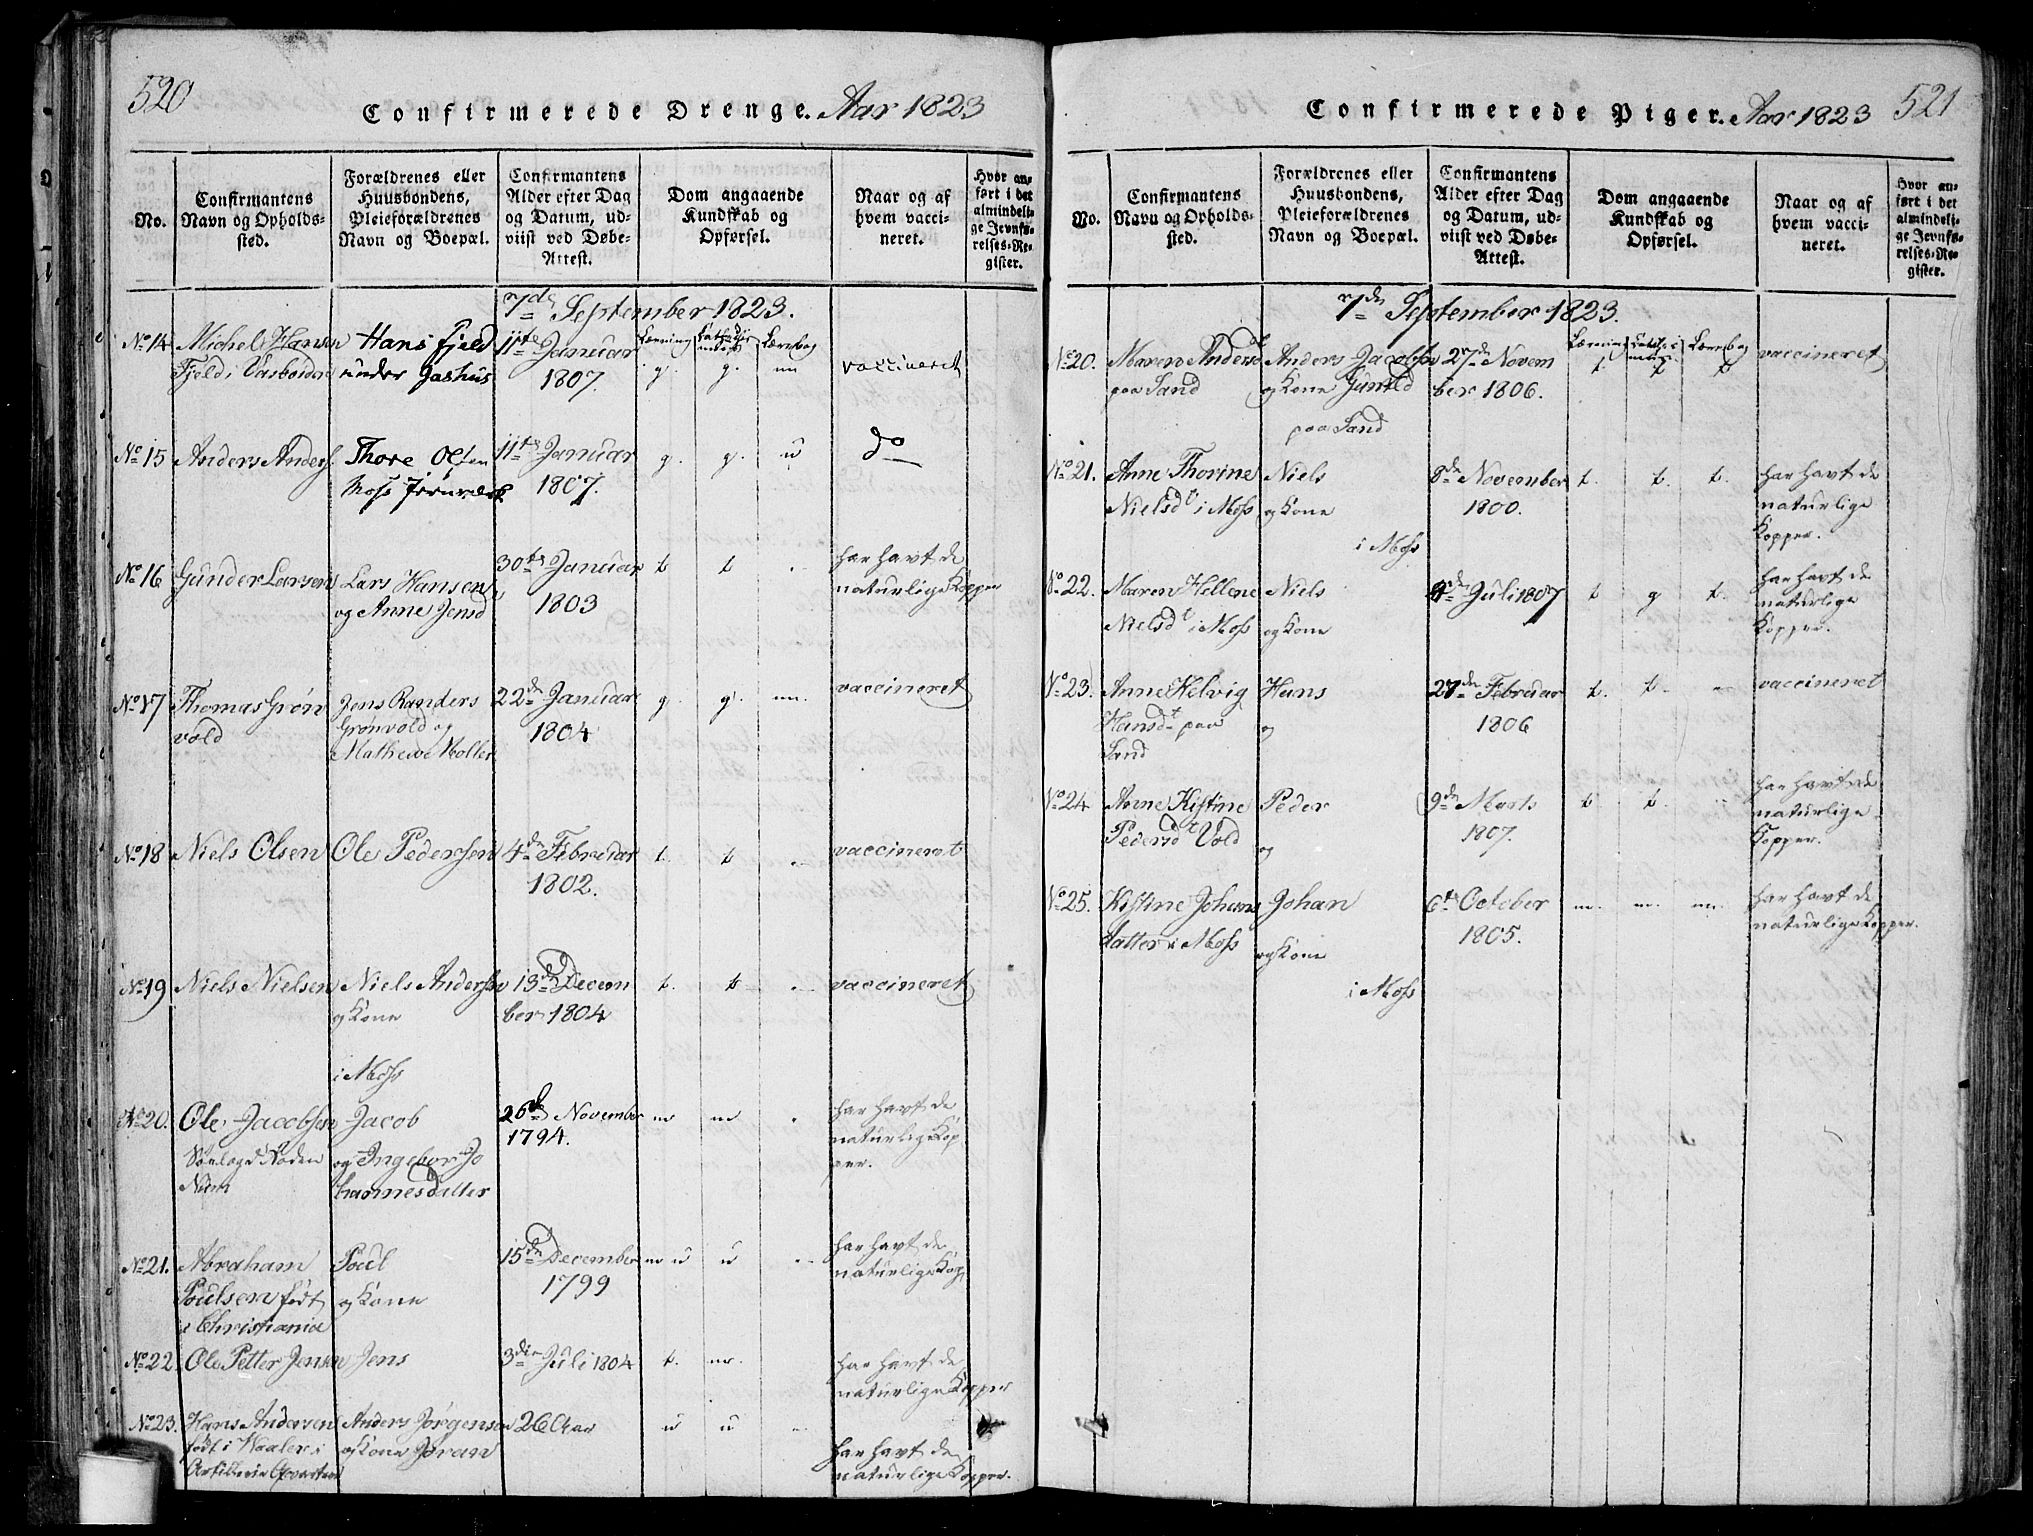 520
Confirmerede Drenge. Aar 1823
No.
Confirmantens
Navn og Opholds-
sted.
Forældrenes eller
Huusbondens,
Pleieforældrenes
Navn og Boepæl.
Confirmantens
Alder efter Dag
og Datum, ud-
viist ved Døbe-
Attest.
Dom angaaende
Kundskab og
Opførsel.
Naar og af
hvem vacci-
neret.
Hvor an-
ført i det
almindeli-
ge Jevnfø-
relses-Re-
gister.
7de September 1823.
No 14 Michel Hansen Hans Fjeld 11te Januar g. g. m vaccineret
Fjeld i under Jashus 1807.
No 15 Anders Anders. Thore Olsen 11te Januar g. g. u do
Moss Jernværk 1807.
No 16 Gunder Larsen Lars Hansen 30te Januar t t har havt de
og Anne Jensd 1803 naturlige Kopper
No 17 Thomas Grøn Jens Randers 22de Januar g. g. m. vaccineret
vold Grønvold og 1804
Møller
No 18 Niels Olsen Ole Pedersen 4de Februar t. t vaccineret
1802.
No 19 Niels Nielsen Niels Andersen 13de Decem t. t vaccineret
og Kone ber 1804
i Moss
No 20. Ole Jacobsen Jacob 26de November m m har havt de
og Ingebor Jo 1794. naturlige Kop
hannesdatter per.
No 21. Abraham Poul 15de December m u u har havt de
Poulsen født og Kone 1799 naturlige Kop
i Christiania
No 22. Ole Petter Jensen Jens 3die Juli 1804 t. m. har havt de
naturlige Kopper
No 23. Hans Andersen Anders Jørgensen 26 Aar u u
født i Waaler i og Kone Jøran har havt de
Artillerie naturlige Kopper.
Confirmerede Piger. Aar 1823
521
No.
Confirmantens
Navn og Opholds-
sted.
Forældrenes eller
Huusbondens,
Pleieforældrenes
Navn og Boepæl.
Confirmantens
Alder efter Dag
og Datum, ud-
viist ved Døbe-
Attest.
Dom angaaende
Kundskab og
Opførsel.
Naar og af
hvem vacci-
neret.
Hvor an-
ført i det
almindeli-
ge Jevnfø-
relses-Re-
gister.
7de September 1823.
No 20. Maren Andersd Anders Jacobsen 27de Novem t. t t vaccineret
paa Sand og Kone Gunild ber 1806.
paa Sand
No 21. Anne Thorine Niels 8de November t. t. t. har havt de
Nielsdt i Moss og Kone 1800. naturlige
i Moss Kopper.
No 22. Maren Hellene Niels Juli 1807 t g t. har havt de
Nielsdt i Moss og Kone naturlige
Kopper.
No 23. Anne Helvig Hans 27de Februar t. t. vaccineret
Hansdt paa og 1806
Sand
No 24 Anne Kistine Peder 9de Marts t t. har havt de
Pedersdt Vold og 1807. naturlige
Kopper.
No 25. Kistine Johans Johan 6te October m. m. m. har havt de
datter i Moss og Kone 1805. naturlige Kopper.
i Moss